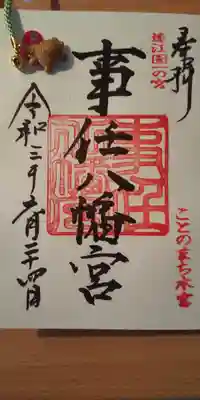 奉拝
遠江国一の宮
ことのまゝ本宮
事任八幡宮
令和三年六月二十四日